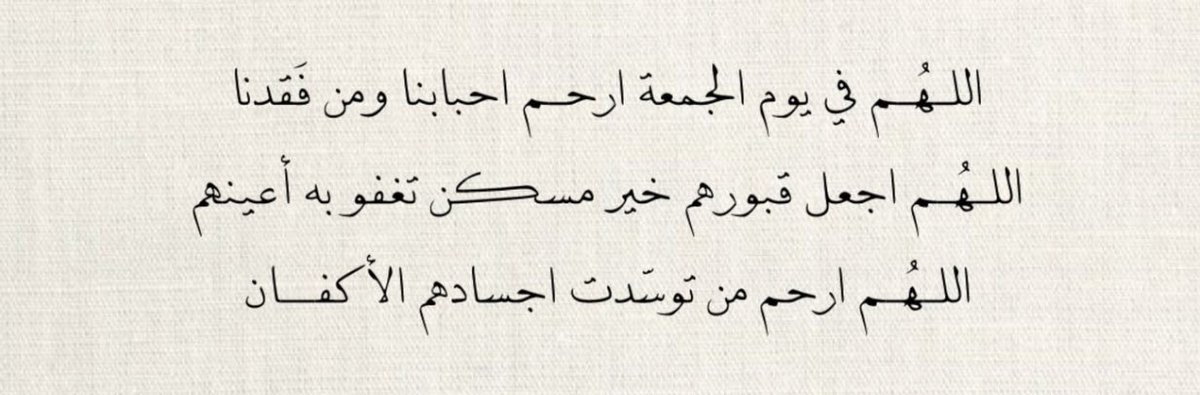 اللـهُـم في يوم الجمعة ارحـم احبابنا ومن فَقدنا
اللـهُـم اجعل قبورهم خير مسكن تغفو به أعينهم
اللـهُـم ارحم من توسّدت اجسادهم الأكفـان